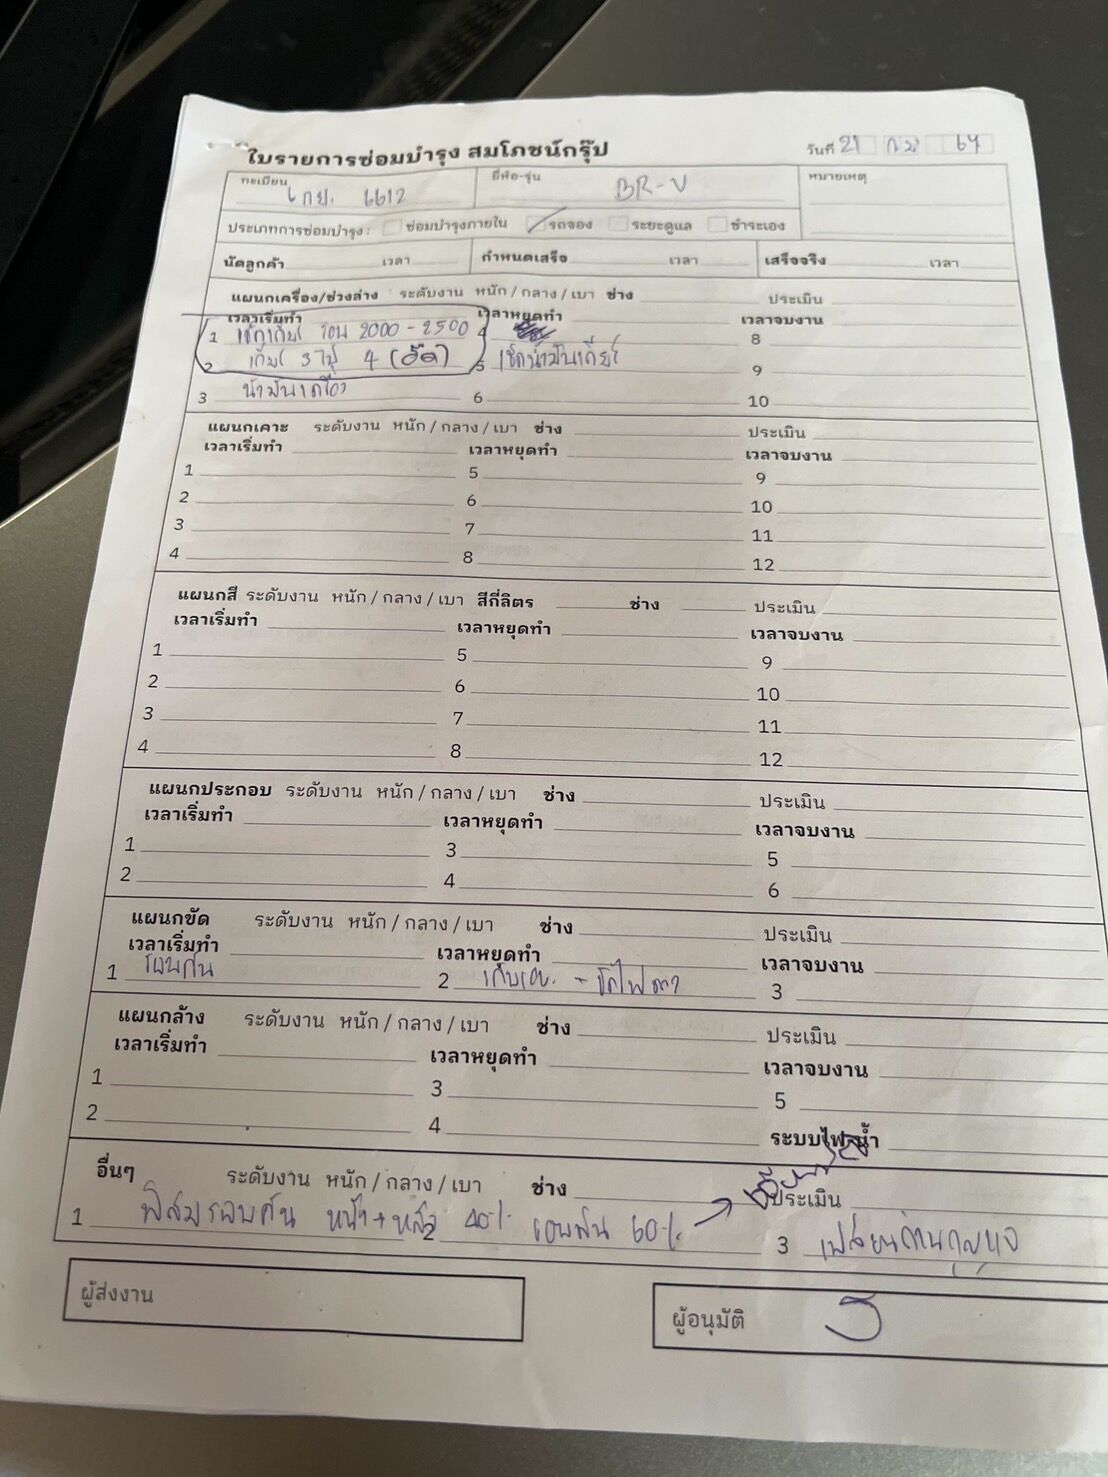 ใบรายการซ่อมบำรุง สมโภชน์กรุ๊ป
วันที่ 21 67
ทะเบียน 6612 ยี่ห้อ-รุ่น BR-V หมายเหตุ
ประเภทการซ่อมบำรุง : ซ่อมบำรุงภายใน รถจอง ระยะดูแล ชำระเอง
นัดลูกค้า เวลา กำหนดเสร็จ เวลา เสร็จจริง เวลา
แผนกเครื่อง/ช่วงล่าง ระดับงาน หนัก / กลาง / เบา ช่าง ประเมิน
เวลาเริ่มทำ เวลาหยุดทำ เวลาจบงาน
1 เช็กเกียร์ รอบ 2000 - 2500 4 8
2 เกียร์ 3 ไป 4 5 เช็คน้ำมันเกียร์ 9
3 น้ำมันเครื่อง 6 10
แผนกเคาะ ระดับงาน หนัก / กลาง / เบา ช่าง ประเมิน
เวลาเริ่มทำ เวลาหยุดทำ เวลาจบงาน
1 5 9
2 6 10
3 7 11
4 8 12
แผนกสี ระดับงาน หนัก / กลาง / เบา สีกี่ลิตร ช่าง ประเมิน
เวลาเริ่มทำ เวลาหยุดทำ เวลาจบงาน
1 5 9
2 6 10
3 7 11
4 8 12
แผนกประกอบ ระดับงาน หนัก / กลาง / เบา ช่าง ประเมิน
เวลาเริ่มทำ เวลาหยุดทำ เวลาจบงาน
1 3 5
2 4 6
แผนกขัด ระดับงาน หนัก / กลาง / เบา ช่าง ประเมิน
เวลาเริ่มทำ เวลาหยุดทำ เวลาจบงาน
1 รอบคัน 2 3
แผนกล้าง ระดับงาน หนัก / กลาง / เบา ช่าง ประเมิน
เวลาเริ่มทำ เวลาหยุดทำ เวลาจบงาน
1 3 5
2 4 ระบบไฟ น้ำ
อื่นๆ ระดับงาน หนัก / กลาง / เบา ช่าง ประเมิน
1 ฟิล์มรอบคัน หน้า + หลัง 40% 2 รอบคัน 60% 3 เปลี่ยนถ่านกุญแจ
ผู้ส่งงาน ผู้อนุมัติ